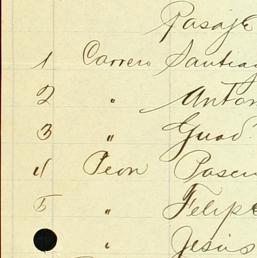 Pasaje
1 Carrero Santiag
2 " Anton
3 " Guad
4 Peon Pasen
5 " Felipe
" Jesus